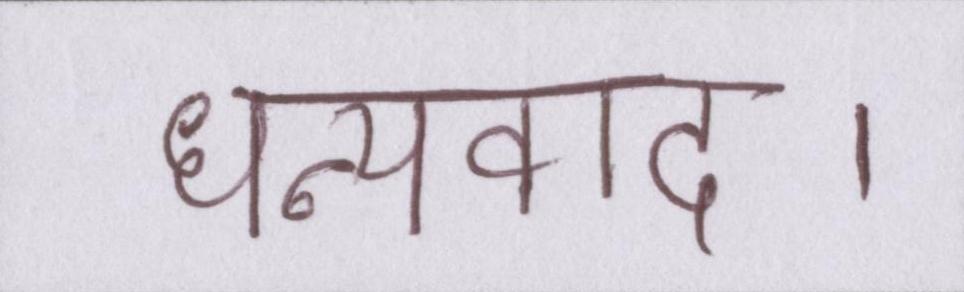 धन्यवाद ।